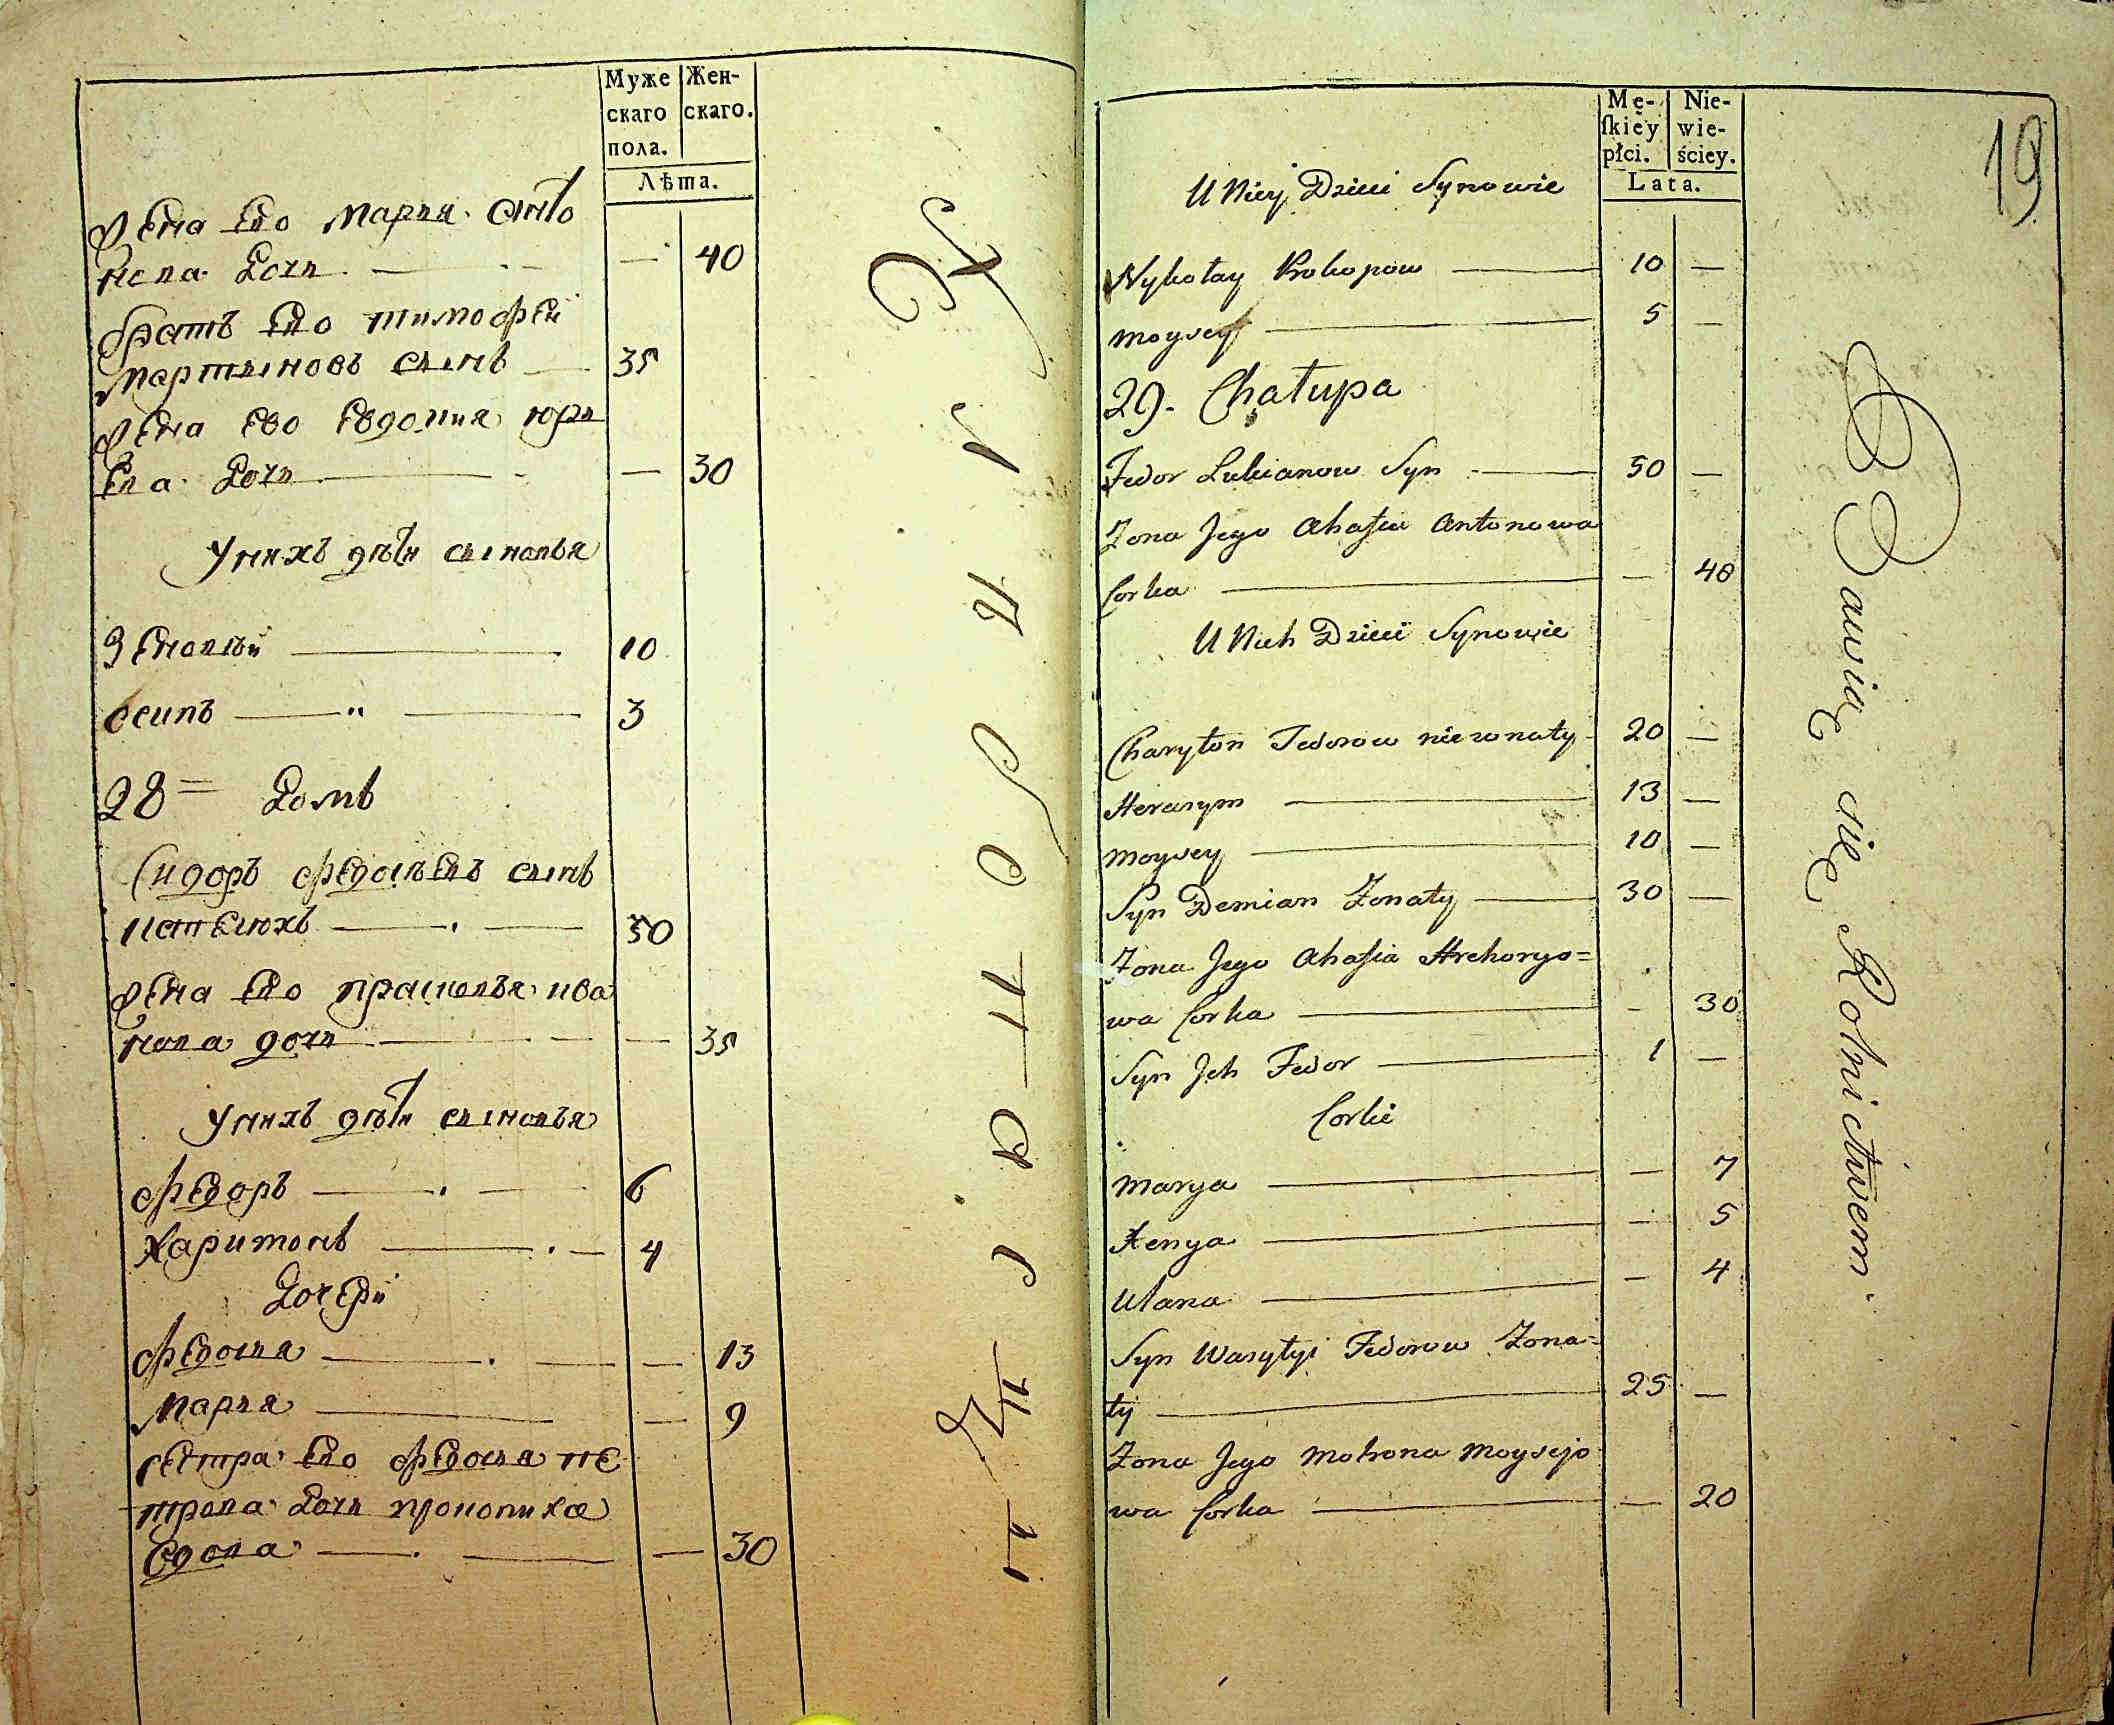 Муже
скаго
пола.
Жен-
скаго.
Лѣта.
Жена Ево Мария Анто
нова Дочь — — 40
братъ Ево тимофей
мартыновъ сынъ — 35
Жена Ево Евдокия юрь
Ева Дочь — — 30
У нихъ дѣти сыновья
Зеновѣй — 10
осипъ — " — 3
28 = Домъ
Сидоръ Федосѣевъ сынъ
— 50
Жена Ево прасковья ива
нова дочь — — 35
У нихъ дѣти сыновья
Федоръ — 6
Харитонъ — 4
Дочери
Федосия — — 13
Мария — — 9
сестра Ево Федосия пе
трова Дочь прокопиха
вдова — — 30
19
Mę-
ſkiéy
płci.
Nie-
wie-
ściey.
Lata.
U Niey Dzieci Synowie
Nykołay Prokopow — 10 —
Moysey — 5 —
29. Chałupa
Fedor Lukianow Syn — 50 —
Zona Jego Ahafia Antonowa
Corka — — 40
U Nich Dzieci Synowie
Charyton Fedorow niezonaty 20 —
Herasym — 13 —
Moysey — 10 —
Syn Demian Zonaty — 30 —
Zona Jego Ahafia Hrehoryo=
wa Corka — — 30
Syn Jch Fedor — 1 —
Corki
Marya — — 7
Xenya — — 5
Ulana — — 4
Syn Wasylyi Fedorow Zona=
ty — 25 —
Zona Jego Motrona Moysejo
wa Corka — — 20
Bawią się Rolnictwem.